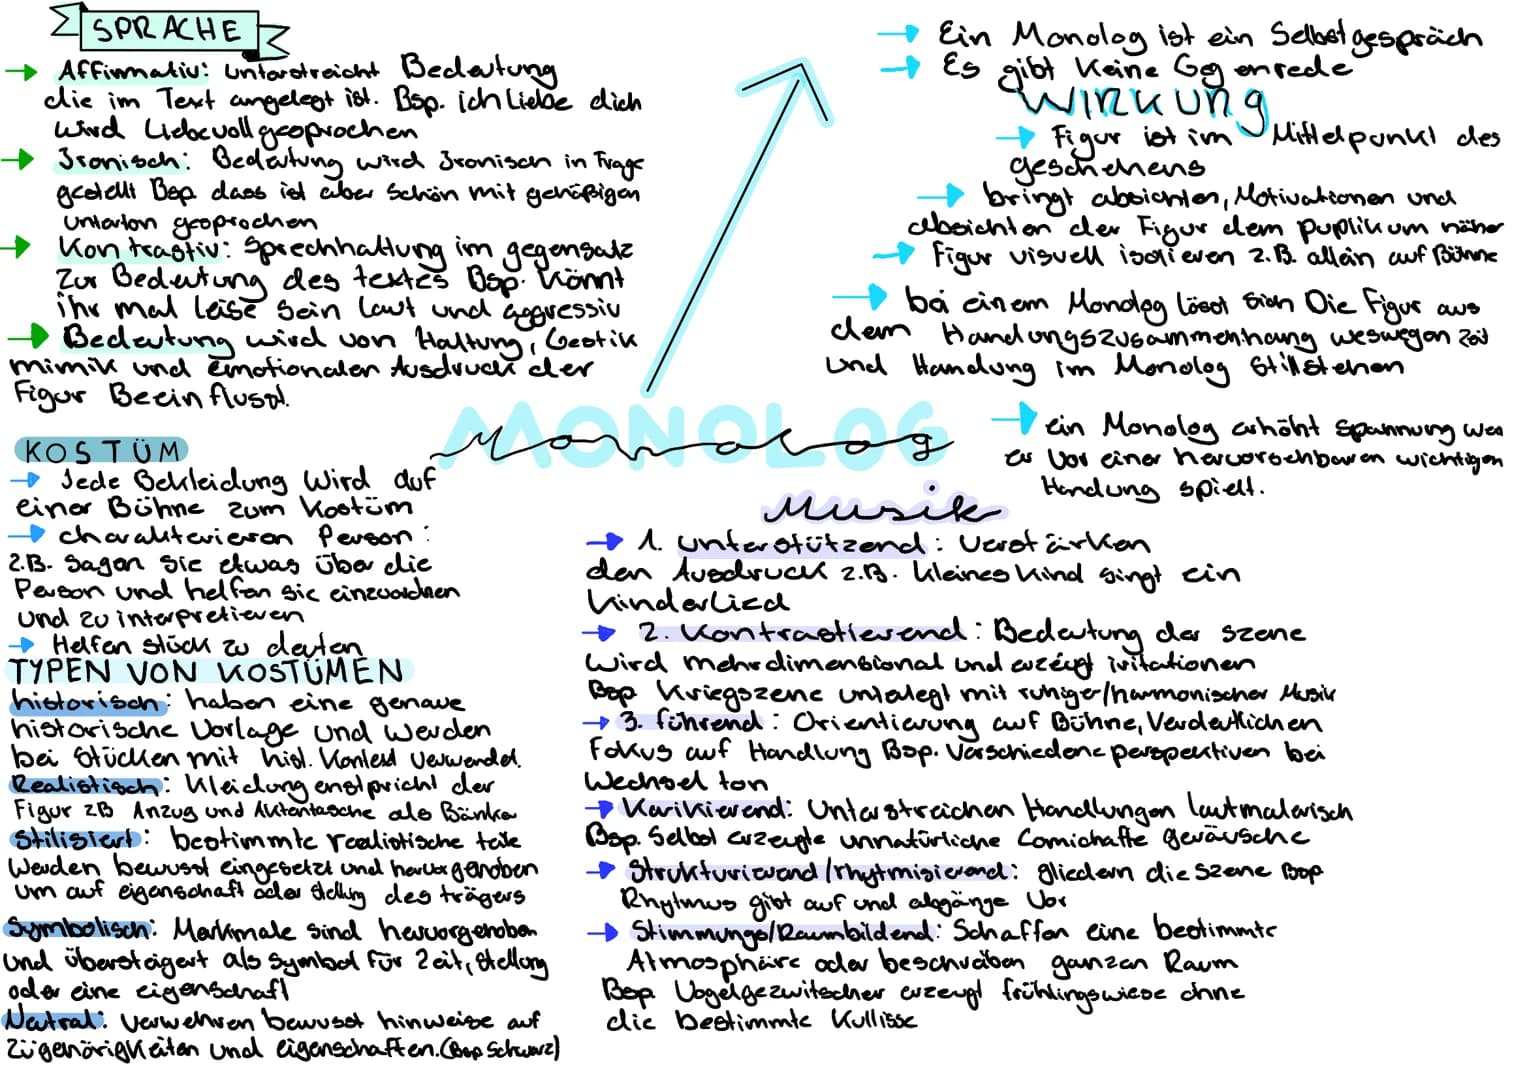 SPRACHE
→ Affirmativ: Unterstreicht Bedeutung
die im Text angelegt ist. Bsp. ich Liebe dich
wird Liebevoll gesprochen
→ Ironisch: Bedeutung wird Ironisch in Frage
gestellt Bsp dass ist aber Schön mit gehäßigen
unterton gesprochen
→ Kontrastiv: Sprechhaltung im gegensatz
zur Bedeutung des textes Bsp. Könnt
ihr mal leise sein laut und aggressiv
→ Bedeutung wird von Haltung, Gestik
mimik und emotionalen Ausdruck der
Figur Beeinflusst.
KOSTÜM
→ Jede Bekleidung Wird auf
einer Bühne zum Kostüm
→ charakterieren Person:
z.B. Sagen Sie etwas über die
Person und helfen sie einzuordnen
und zu interpretieren
→ Helfen stück zu deuten
TYPEN VON KOSTÜMEN
historisch: haben eine genaue
historische Vorlage und werden
bei Stücken mit hist. Kontext verwendet.
Realistisch: Kleidung enstpricht der
Figur zB Anzug und Aktentasche als Bänker
Stilisiert: bestimmte realistische teile
werden bewusst eingesetzt und hervorgehoben
um auf eigenschaft oder stellung des trägers
Symbolisch: Merkmale sind hervorgehoben
und übersteigert als Symbol für Zeit, Stellung
oder eine eigenschaft
Neutral: verwehren bewusst hinweise auf
Zugehörigkeiten und eigenschaften. (Bsp Schwarz)
MONOLOG
Monolog
→ Ein Monolog ist ein Selbstgespräch
→ Es gibt Keine Gegenrede
WIRKUNG
→ Figur ist im Mittelpunkt des
geschehens
→ bringt absichten, Motivationen und
absichten der Figur dem puplikum näher
→ Figur visuell isolieren z.B. allein auf Bühne
→ bei einem Monolog lösst sich Die Figur aus
dem Handungszusammenhang weswegen Zeit
und Handlung im Monolog Stillstehen
→ ein Monolog erhöht Spannung wen
er vor einer hervorsehbaren wichtigen
Handung spielt.
Musik
→ 1. unterstützend: Verstärken
den Ausdruck z.B. kleines Kind singt ein
Kinderlied
→ 2. Kontrastierend: Bedeutung der Szene
wird mehrdimensional und erzeugt irritationen
Bsp Kriegszene unterlegt mit ruhiger/harmonischer Musik
→ 3. führend: Orientierung auf Bühne, Verdeutlichen
Fokus auf Handlung Bsp. Verschiedene perspektiven bei
Wechsel ton
→ Karikierend: Unterstreichen Handlungen lautmalerisch
Bsp. Selbst erzeugte unnatürliche Comichafte geräusche
→ Strukturierend/rhytmisierend: gliedern die Szene Bsp
Rhytmus gibt auf und abgänge vor
→ Stimmungs/Raumbildend: Schaffen eine bestimmte
Atmosphäre oder beschreiben ganzen Raum
Bsp Vogelgezwitscher erzeugt frühlingswiese ohne
die bestimmte Kullisse